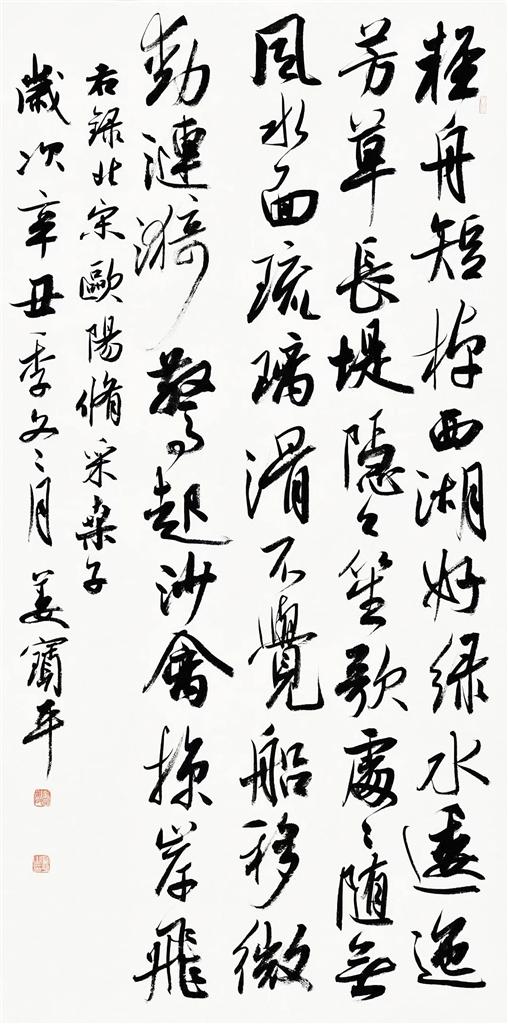 輕舟短棹西湖好綠水逶迤
芳草長堤隱々笙歌處々随無
風水面琉璃滑不覺船移微
動漣漪驚起沙禽掠岸飛
右錄北宋歐陽脩采桑子
歲次辛丑季冬之月姜寶平